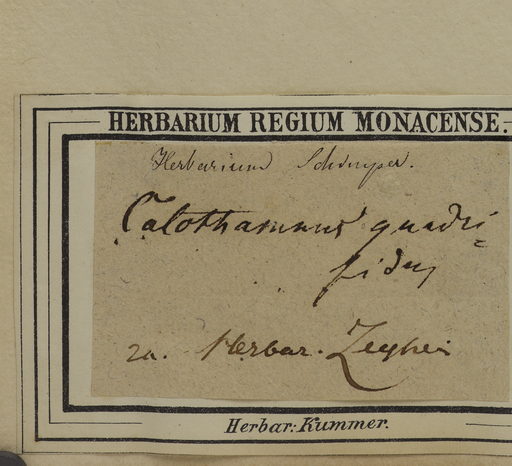 HERBARIUM REGIUM MONACENSE.
Herbarium Schimper.
Calothamnus quadri=
fidus
Herbar. Zeyheri
Herbar: Kummer.